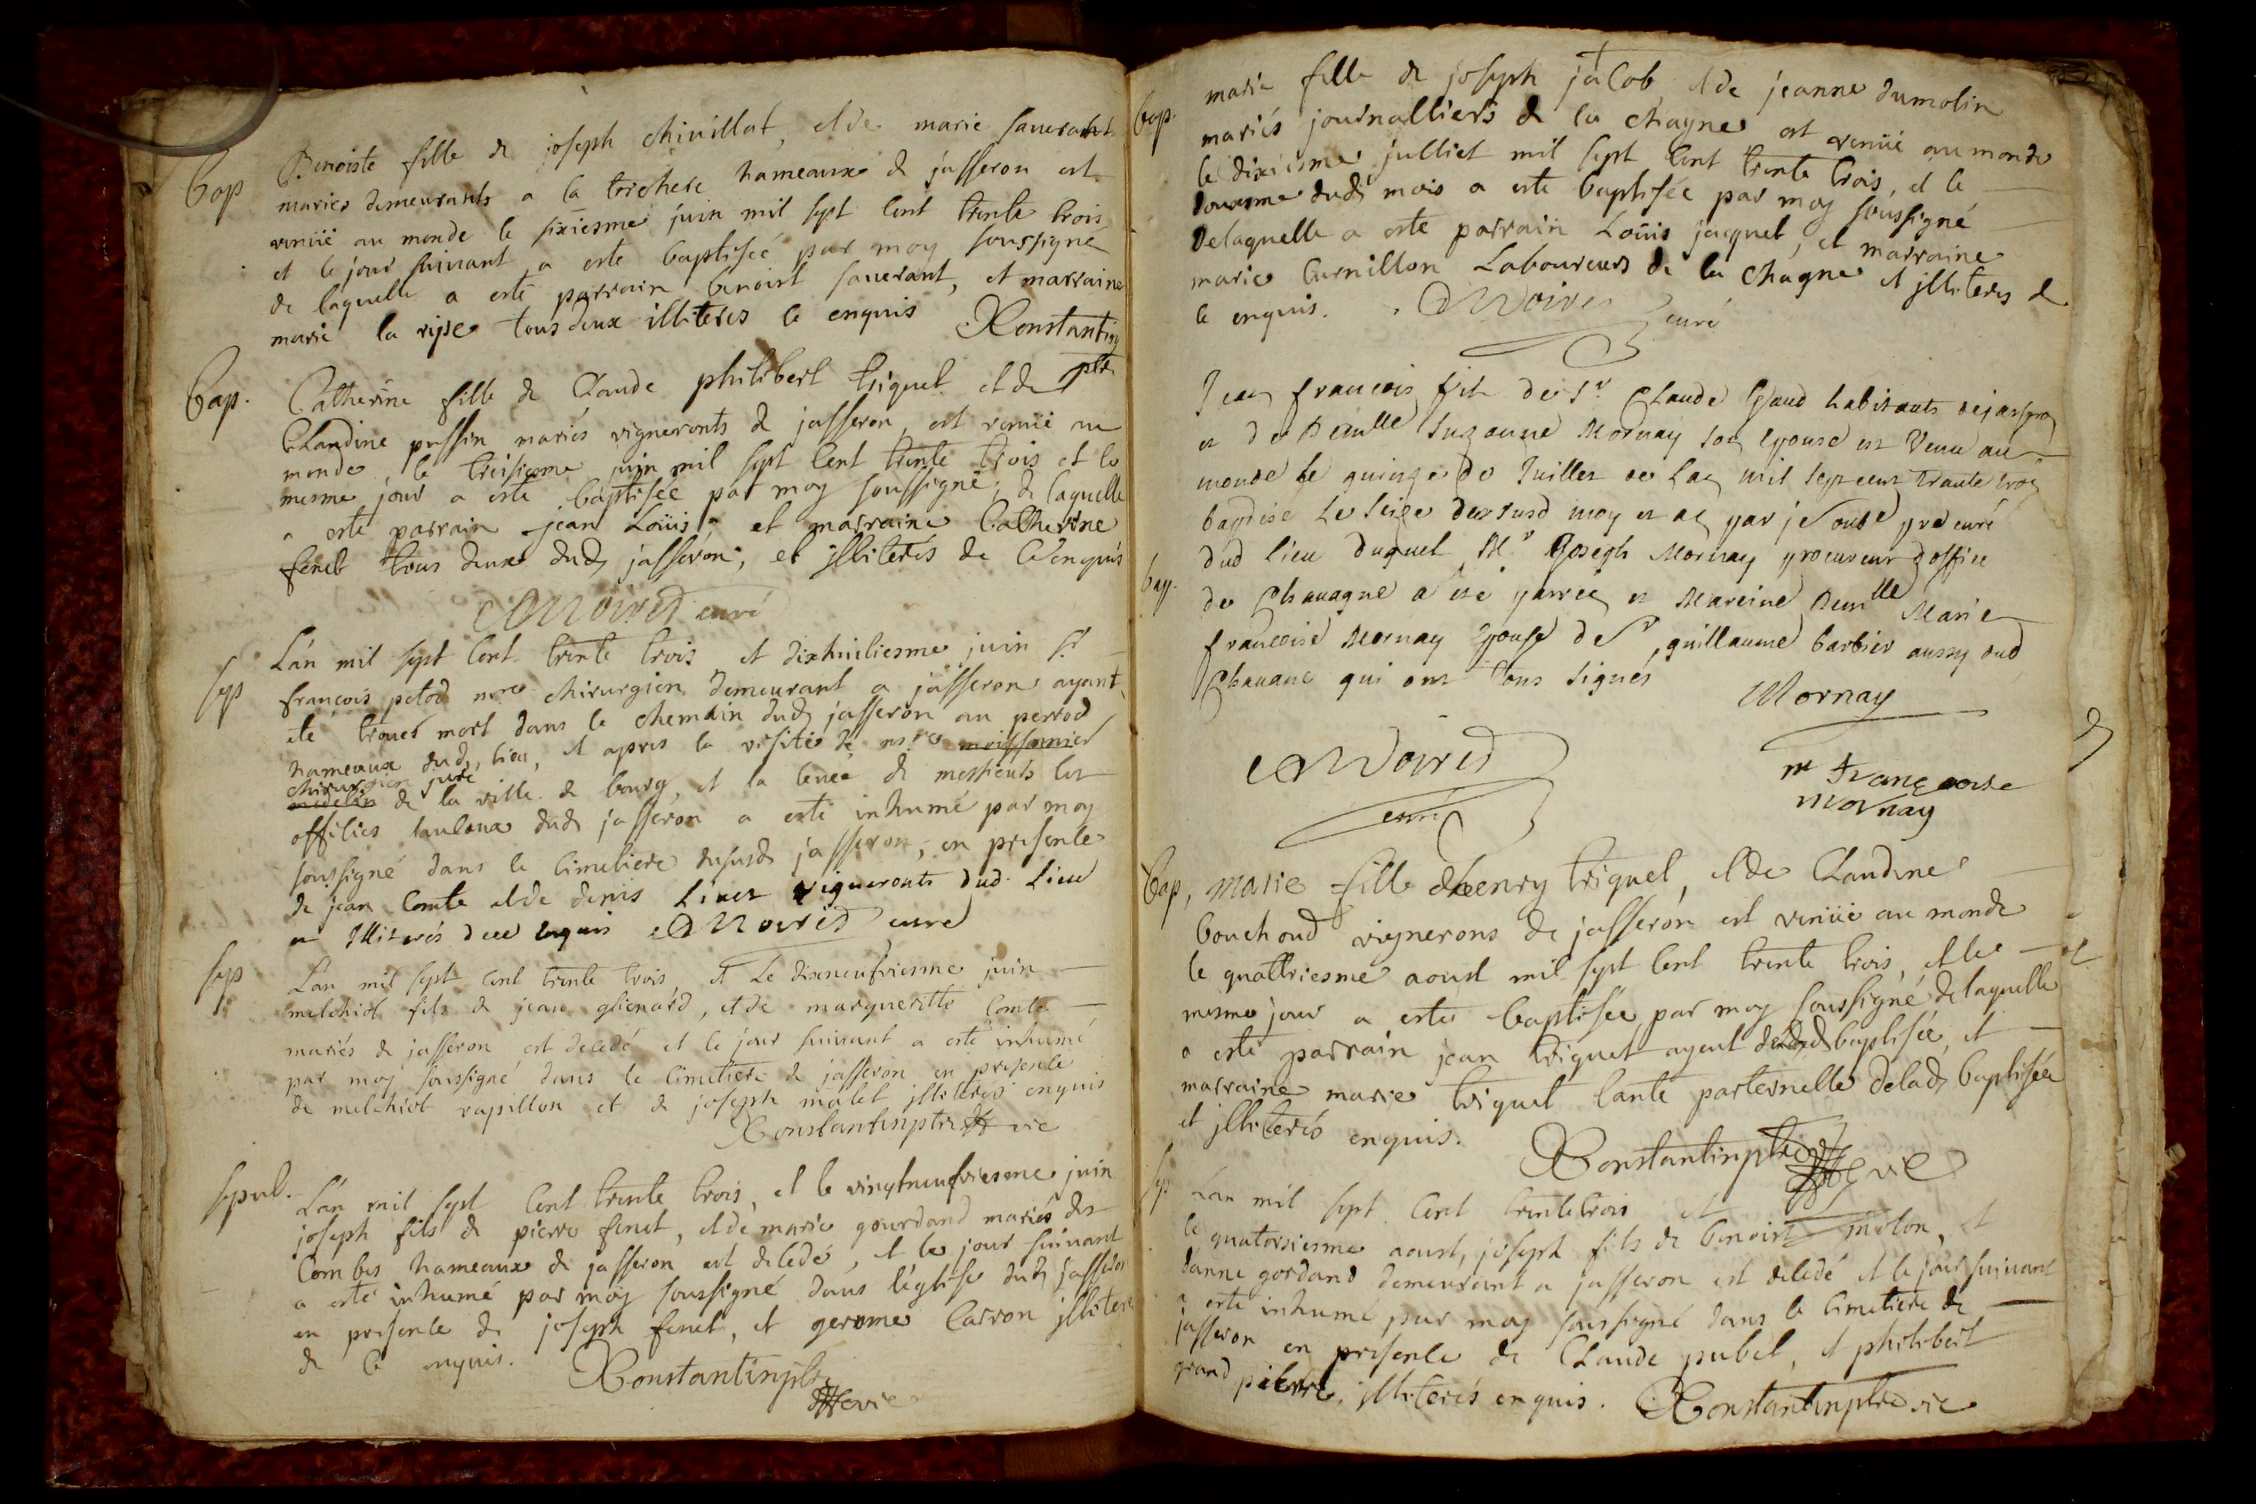 Bap Benoiste fille de joseph chivillat, et de marie saverant
mariés demeurants a la torchere hameaux de jasseron est
venüe au monde le sixiesme juin mil sept cent trente trois
et le jour suivant a esté baptisée par moy soussigné
de laquelle a esté parrain benoist saverant, et marraine
marie la ripe tous deux illiteres ce enquis Constantin
ptre
Bap. Catherine fille de Claude philibert triquet et de
Claudine pussin mariés vigneronts de jasseron, est venüe au
monde le treisiesme juin mil sept cent trente trois et le
mesme jour a esté baptisée par moy soussigné, de laquelle
a esté parrain jean Loüis et marraine Catherine
fenet tous deux dud jasseron, et illiterés de ce enquis
Moirid curé
sep L'an mil sept cent trente trois et dixhuitiesme juin Sr
françois petod mre chirurgien demeurant a jasseron ayant
eté trouvé mort dans le chemin dud jasseron au perrod
hameaux dud lieu, et apres la visite de mre moissonnier
chirurgien juré
medecin de la ville de bourg, et la levée de messieurs les
officies dud jasseron a esté inhumé par moy
soussigné dans le cimetiere dususd jasseron, en presence
de jean Comte et de denis Livet vigneronts dud. Lieu
et illiterés de ce enquis Moirid curé
sep L'an mil sept cent trente trois, et Le dixneufviesme juin
melchiot fils de jean grenard, et de margueritte Comte
mariés de jasseron est decedé et le jour suivant a esté inhumé
par moy soussigné dans le cimetiere de jasseron en presence
de melchiot rapillon et de joseph malet illiterés enquis
Constantin ptre vic
sepul. L'an mil sept cent trente trois, et le vingtneufviesme juin
joseph fils de pierre fenet, et de marie gourdand mariés des
Combes hameaux de jasseron est decedé, et le jour suivant
a esté inhumé par moy soussigné dans l'eglise dud jasseron
en presence de joseph fenet, et gerome Carron illiteres
de ce enquis. Constantin ptre
vic
bap. marie fille de joseph jacob et de jeanne dumolin
mariés journalliers de la chagne est venüe au monde
le dixiesme julliet mil sept cent trente trois, et le
dousiesme dud mois a esté baptisée par moy soussigné
delaquelle a esté parrain Loüis jacquet, et marraine
marie Curnillon Laboureurs de la chagne et illiteres de
ce enquis. Moirid curé
Jean francois fils de Sr Claude habitants de jasseron
et de Demlle Suzanne Mornay son epouse est venu au
monde le quinze de Juillet de l'an mil sept cent trante trois
baptisé le seize du susd moy et an par je soubsé pre curé
bap. dud lieu duquel Mr Joseph Mornay procureur d'office
de Chavagne a eté parrein et Mareine Demlle Marie
francoise Mornay Epouse de Sr guillaume barbier aussy dud
Chavane qui ont tous signés
Mornay
Moirid
curé
m francoise
mornay
Bap, marie fille de henry triquet, et de Claudine
bouchoud vignerons de jasseron est venüe au monde
le quattriesme aoust mil sept cent trente trois, et le
mesme jour a esté baptisée par moy soussigné delaquelle
a esté parrain jean triquet ayeul de lad baptisée, et
marraine marie triquet tante parternelle de lad baptisée
et illiterés enquis.
Constantin ptre vic
sep Lan mil sept cent trente trois et
le quatorsiesme aoust, joseph fils de benoist molon, et
danne gordand demeurant a jasseron est decedé et le jour suivant
a esté inhumé par moy soussigné dans le cimetiere de
jasseron en presence de Claude pubel, et philibert
grand pierre, illiterés enquis. Constantin ptre vic